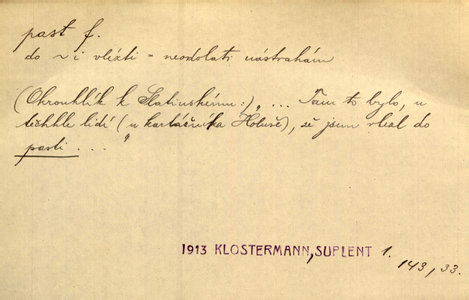 past f.
do ~i vlézti - neodolati nástrahám
(Okrouhlík k Slatinskému:) „... Tam to bylo, u
těchhle lidí (u kartáčníka Holuše), že jsem vlezl do
pasti ..."
1913 KLOSTERMANN, SUPLENT 1.
143, 33.